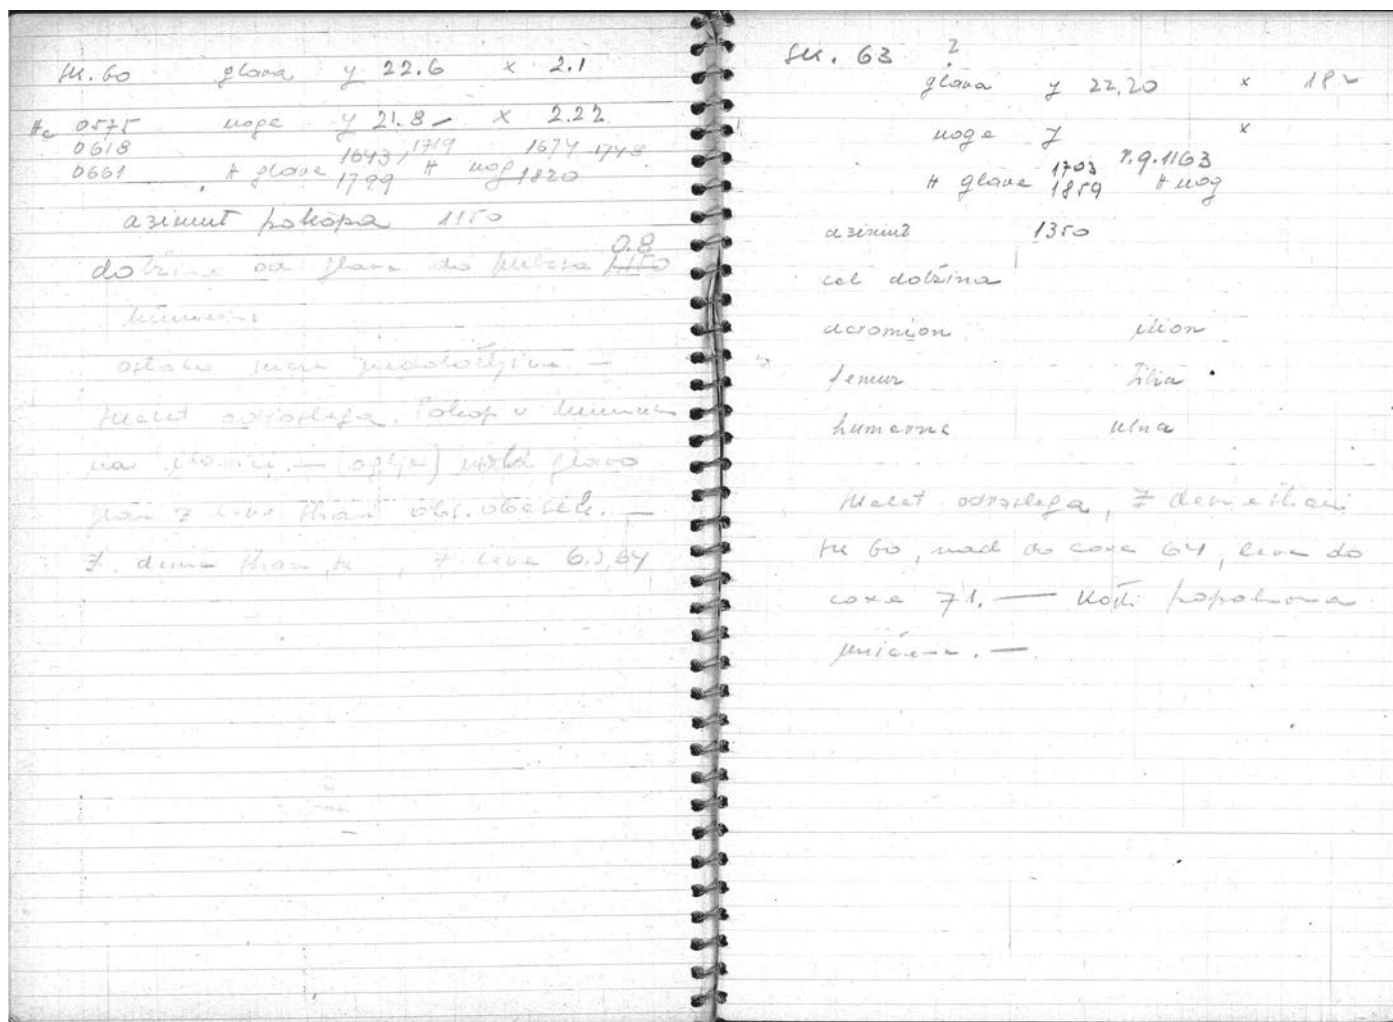 sk. 60 glava y 22.6 x 2.1
Hc 0575 noge y 21.8 x 2.22
0618 1643 / 1719 1674 1748
0661 H glave 1799 H nog 1820
azimut pokopa 1150
0.8
dolžina od glave do 1150
humerus
ostale mere nedoločljive. —
skelet odraslega. Pokop v
na ilovici. — (oglje)
z leve strani obs. obesek. —
z desne strani sk , z leve 63, 64
sk. 63 ?
glava y 22.20 x 182
noge y x
H glave 1703 r.q. 1163
1859 H nog
azimut 1350
cel dolžina
acromion ilion
femur tibia
humerus ulna
skelet odraslega, z desne strani
sk 60, nad do coxe 64, leve do
coxe 71. — kosti popolnoma
uničene. —